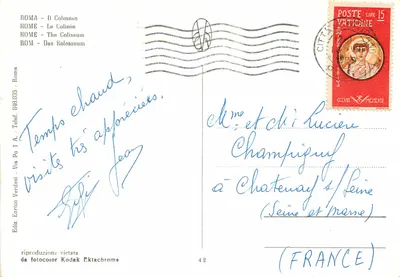 ROMA - Il Colosseo
ROME - Le Colisée
ROME - The Coliseum
ROM - Das Kolosseum
POSTE LIRE 15
VATICANE
CITTÀ
Temps chaud,
visites très appréciées.
Jean
Mme et Mr Lucien
Champigny
à Chatenay s/ Seine
(Seine et Marne)
(FRANCE)
Ediz. Enrico Verdesi - Via Po 1 A - Telef. 848.035 - Roma
riproduzione vietata
da fotocolor Kodak Ektachrome
48